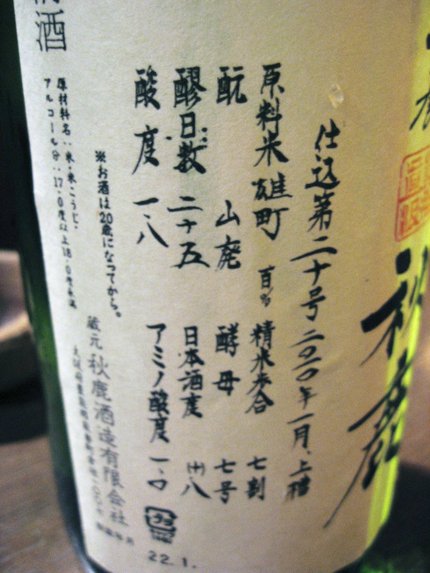 秋鹿
仕込第二十号 二〇一〇年一月、上槽
原料米 雄町 百% 精米歩合 七割
酛 山廃 酵母 七号
醪日数 二十五 日本酒度 (+)八
酸度 一、八 アミノ酸度 一、〇
※お酒は20歳になってから。
清酒
原材料名:米・米こうじ、
アルコール分:17.0度以上18.0度未満
蔵元 秋鹿酒造有限会社
22.1.